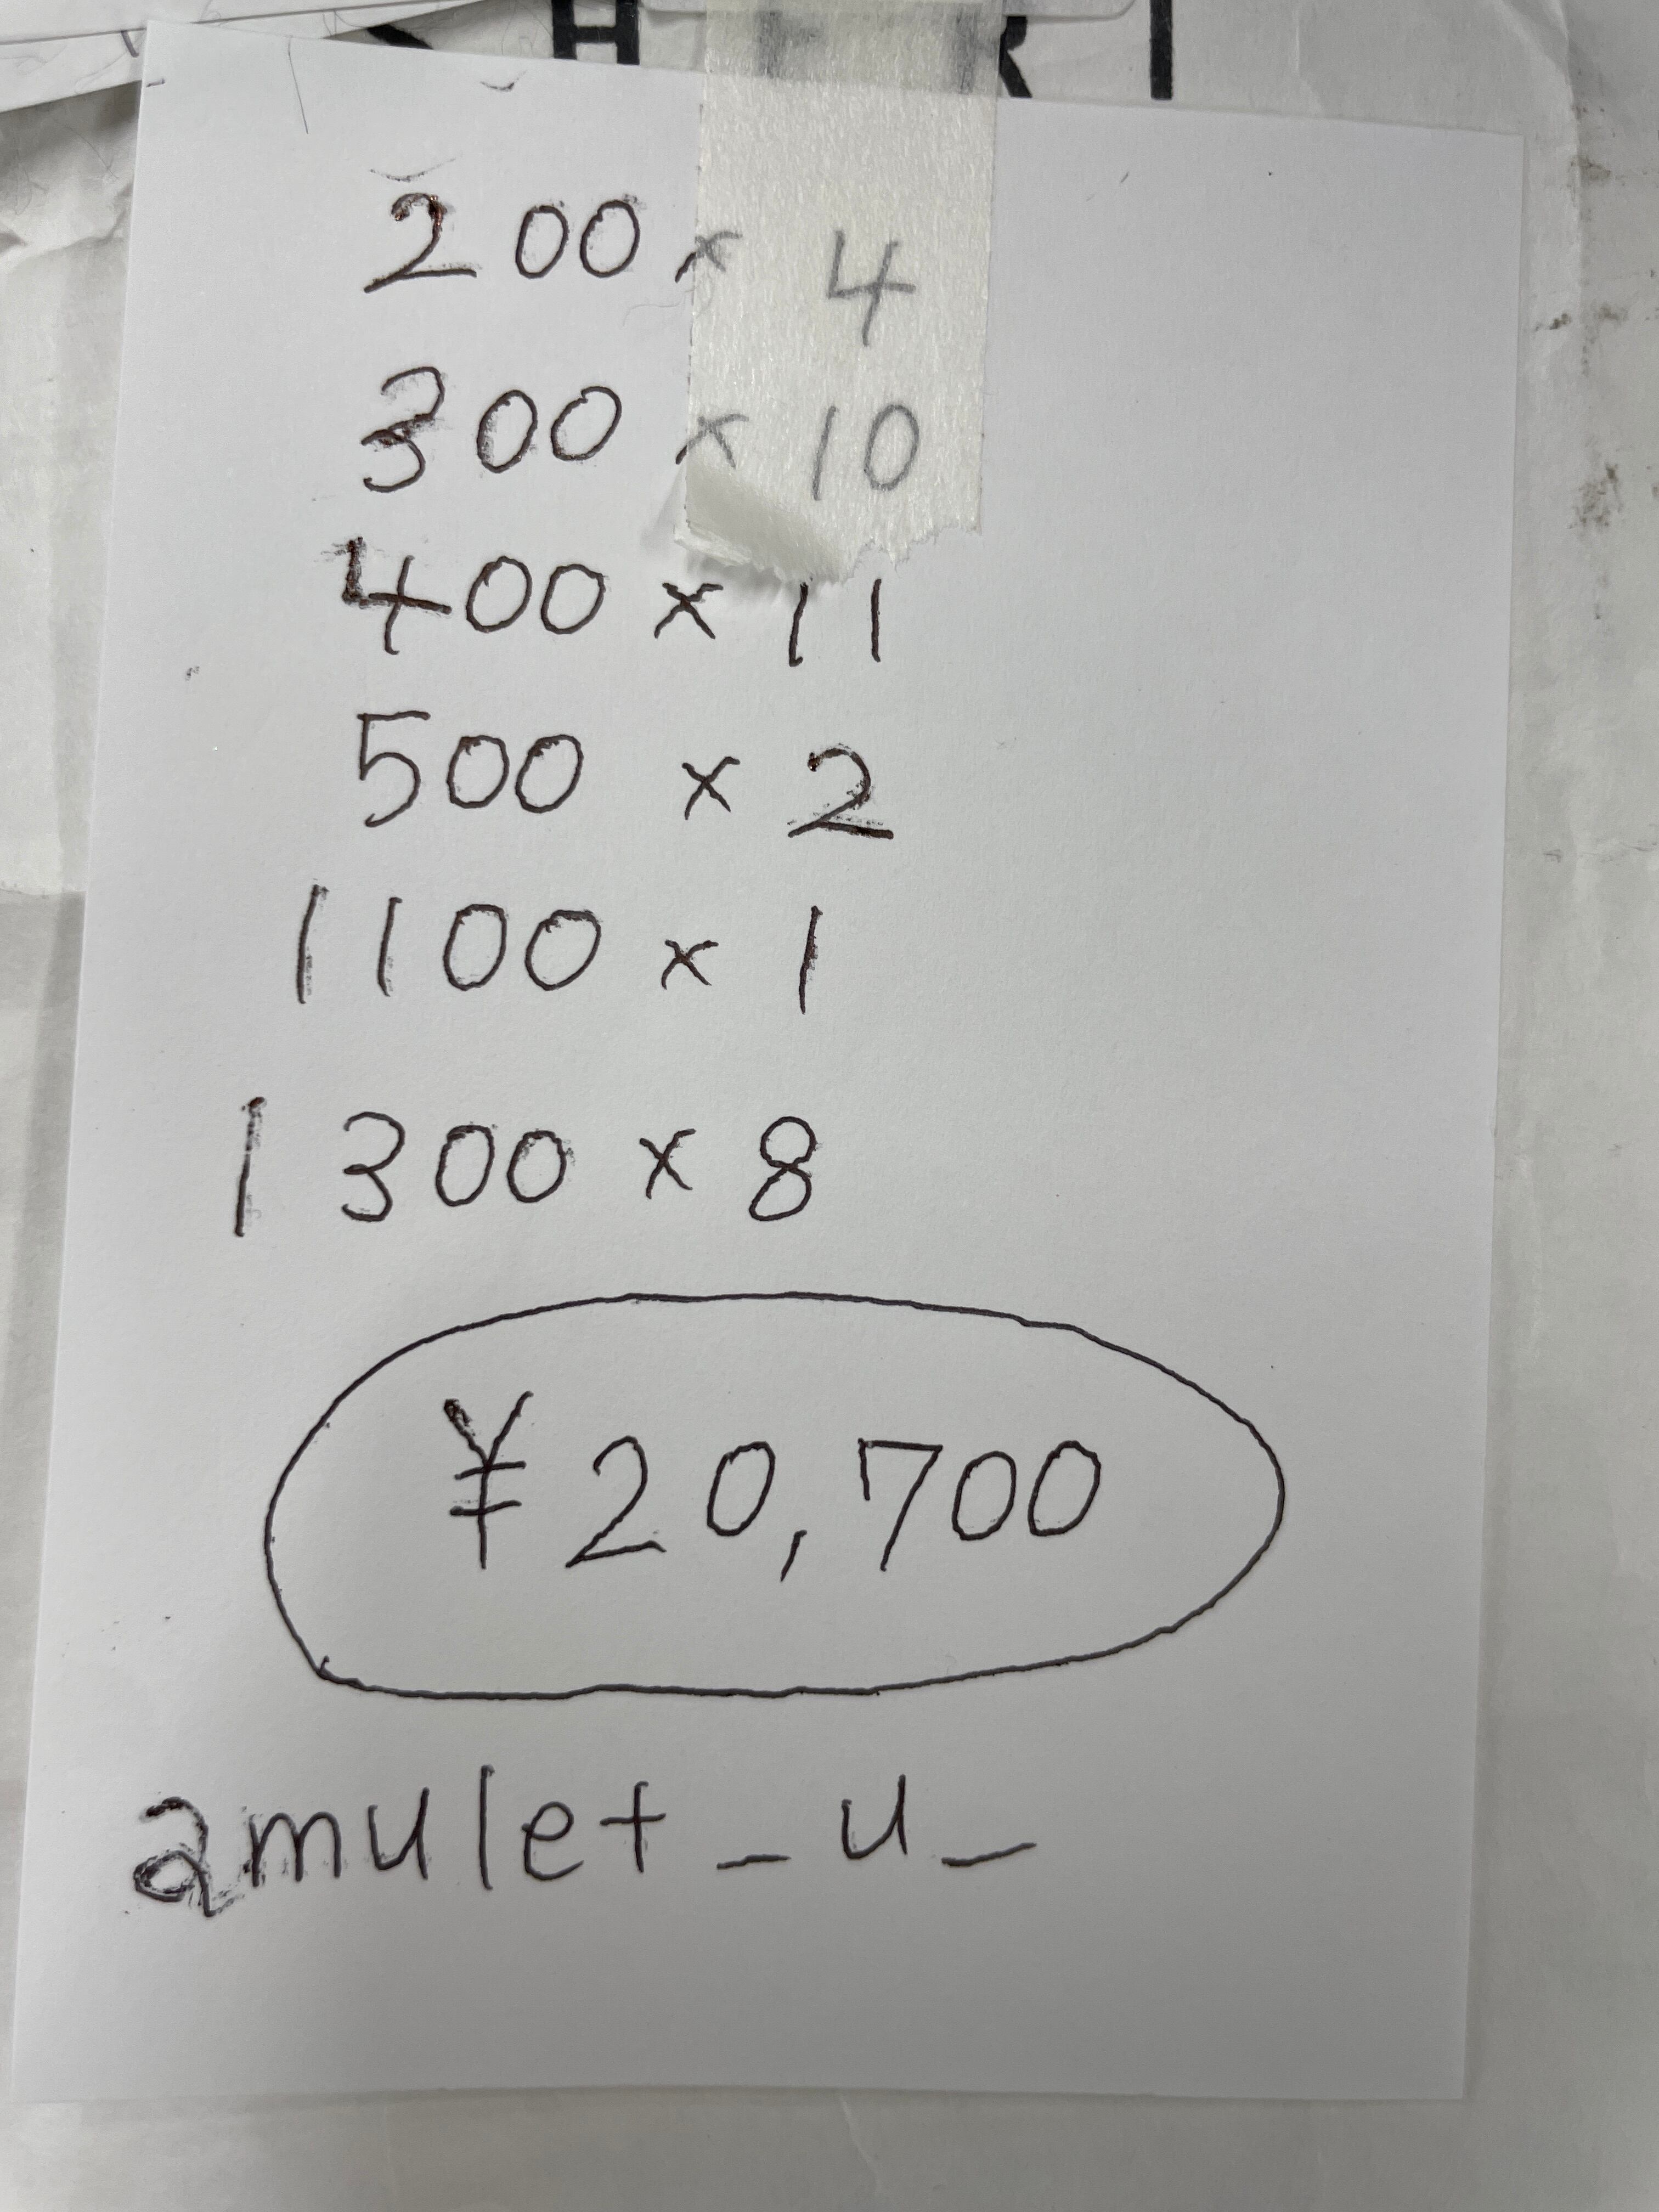 200 x 4
300 x 10
400 x 11
500 x 2
1100 x 1
1300 x 8
¥20,700
amulet_u_